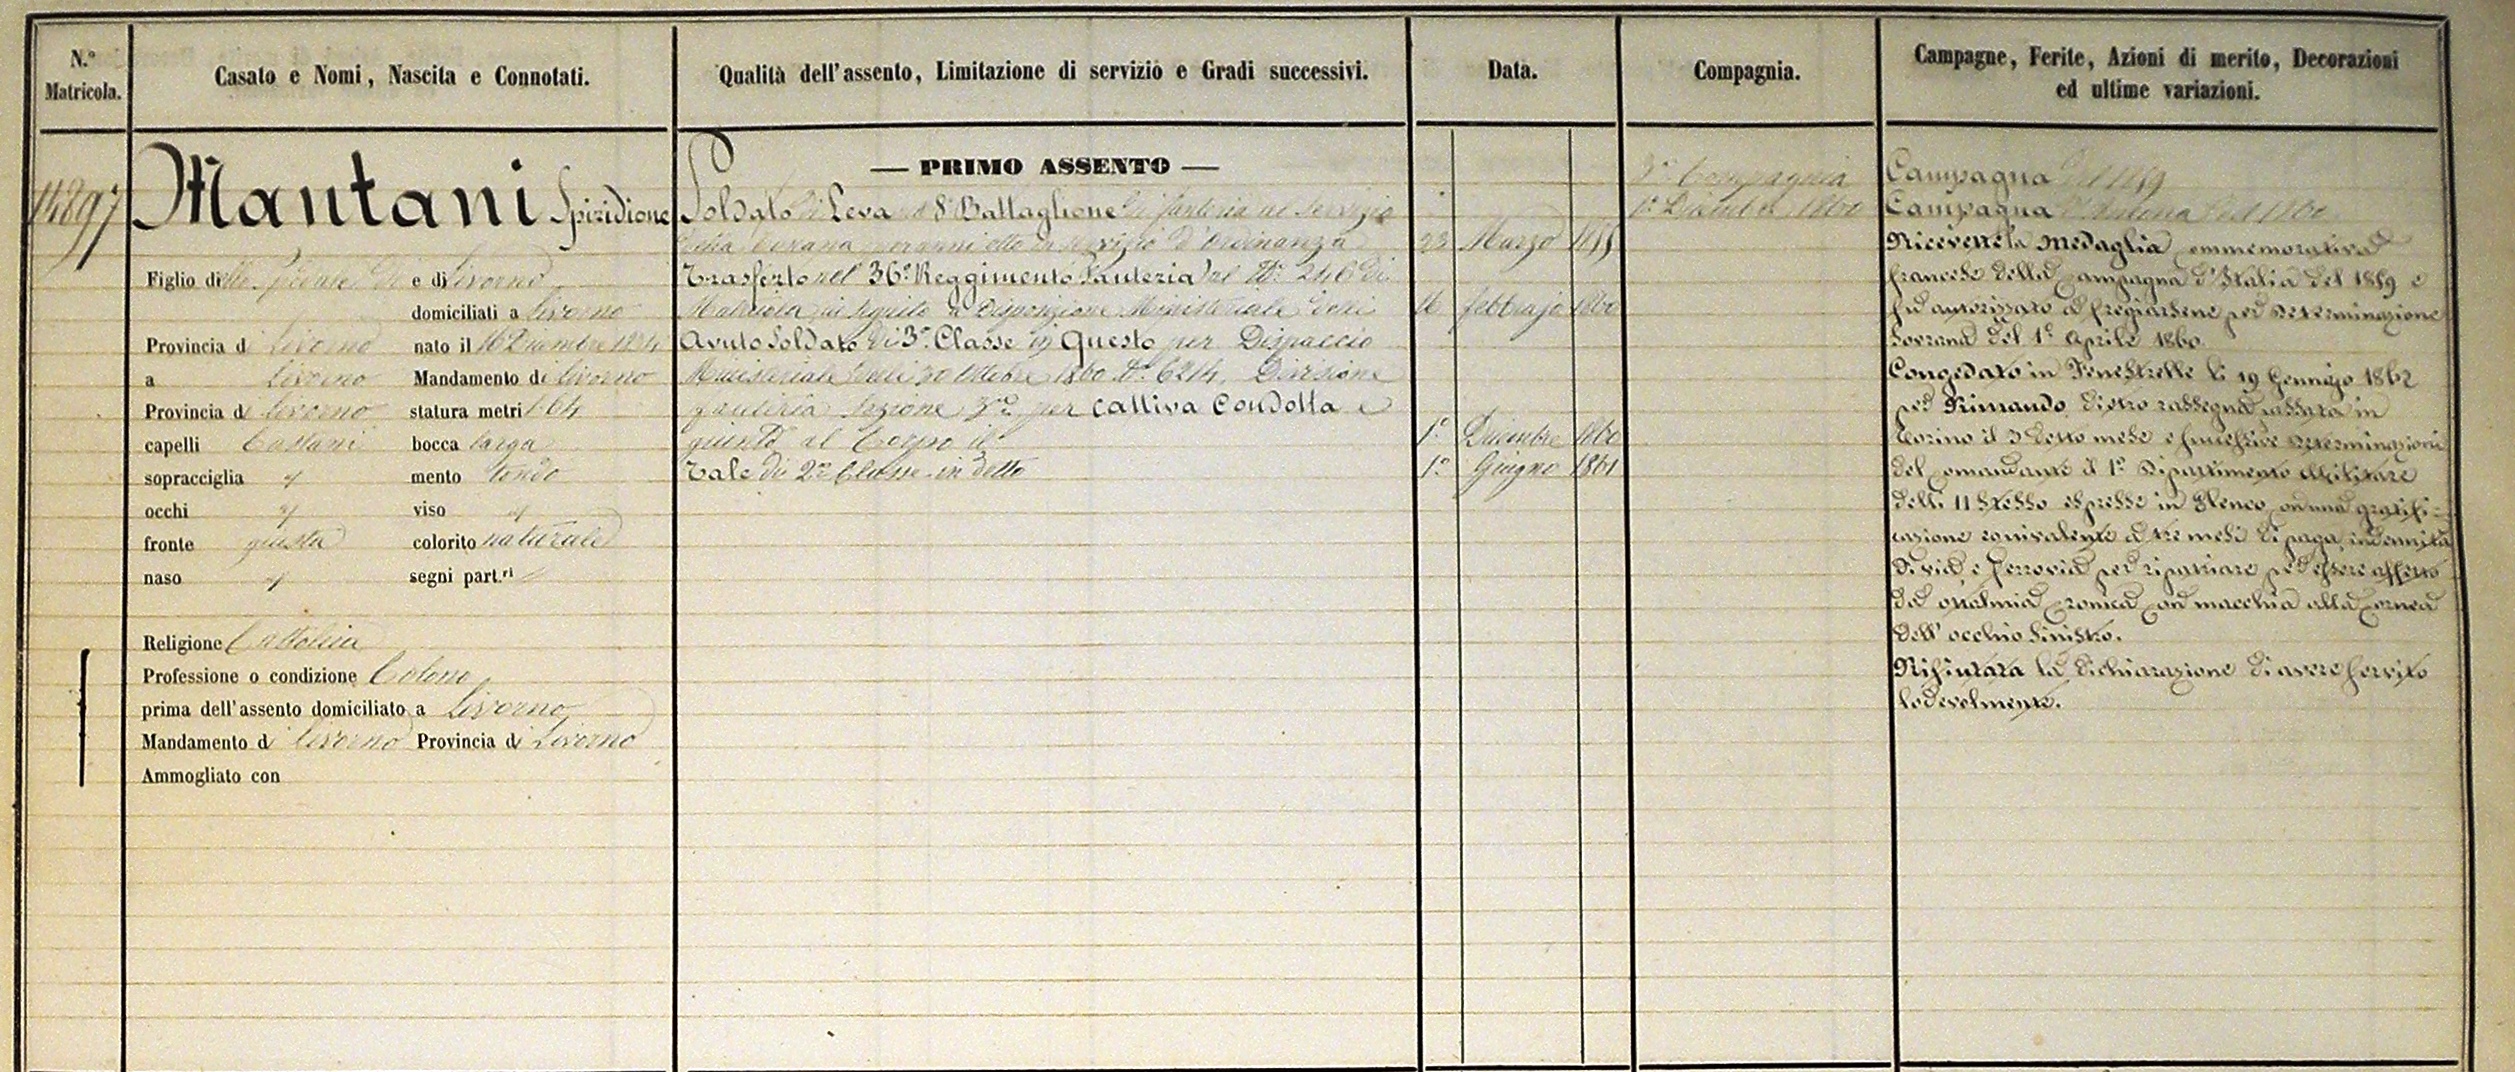 N.º Matricola.
Casato e Nomi, Nascita e Connotati.
Qualità dell'assento, Limitazione di servizio e Gradi successivi.
Data.
Compagnia.
Campagne, Ferite, Azioni di merito, Decorazioni
ed ultime variazioni.
14897
Mantani Spiridione
Figlio dello Spedale di e di Livorno
domiciliati a Livorno
Provincia di Livorno nato il 16 Dicembre 1834
a Livorno Mandamento di Livorno
Provincia di Livorno statura metri 1.64
capelli Castani bocca larga
sopracciglia mento tondo
occhi viso
fronte giusta colorito naturale
naso segni part.ri
Religione Cattolica
Professione o condizione Colono
prima dell'assento domiciliato a Livorno
Mandamento di Livorno Provincia di Livorno
Ammogliato con
— PRIMO ASSENTO —
Soldato di Leva nel 8º Battaglione di fanteria al servizio
della Toscana per anni otto in servizio d'Ordinanza 23 Marzo 1855
Trasferto nel 36º Reggimento Fanteria al Nº 246 di
Matricola in seguito a Disposizione Ministeriale delli 16 febbrajo 1860
Avuto Soldato di 3ª Classe in Questo per Dispaccio
Ministeriale delli 30 Ottobre 1860 Nº 6214, Divisione
fanteria Sezione 3ª per cattiva Condotta e
giunto al Corpo il 1º Dicembre 1860
Tale di 2ª Classe in detto 1º Giugno 1861
3ª Compagnia
1º Dicembre 1860
Campagna del 1859
Campagna d'Ancona del 1860
Ricevette la Medaglia commemorativa
francese della Campagna d'Italia del 1859 e
fu autorizzato a fregiarsene per Determinazione
Sovrana del 1º Aprile 1860.
Congedato in Fenestrelle li 19 Gennajo 1862
per Rimando dietro rassegna passata in
Torino il 3 detto mese e successive determinazioni
del Comandante il 1º Dipartimento Militare
delli 11 stesso espresse in Elenco, con una gratifi-
cazione equivalente a tre mesi di paga, indennità
di via e ferrovia per ripatriare per essere affetto
da ottalmia cronica con macchia alla cornea
dell'occhio sinistro.
Rifiutata la dichiarazione di avere servito
lodevolmente.